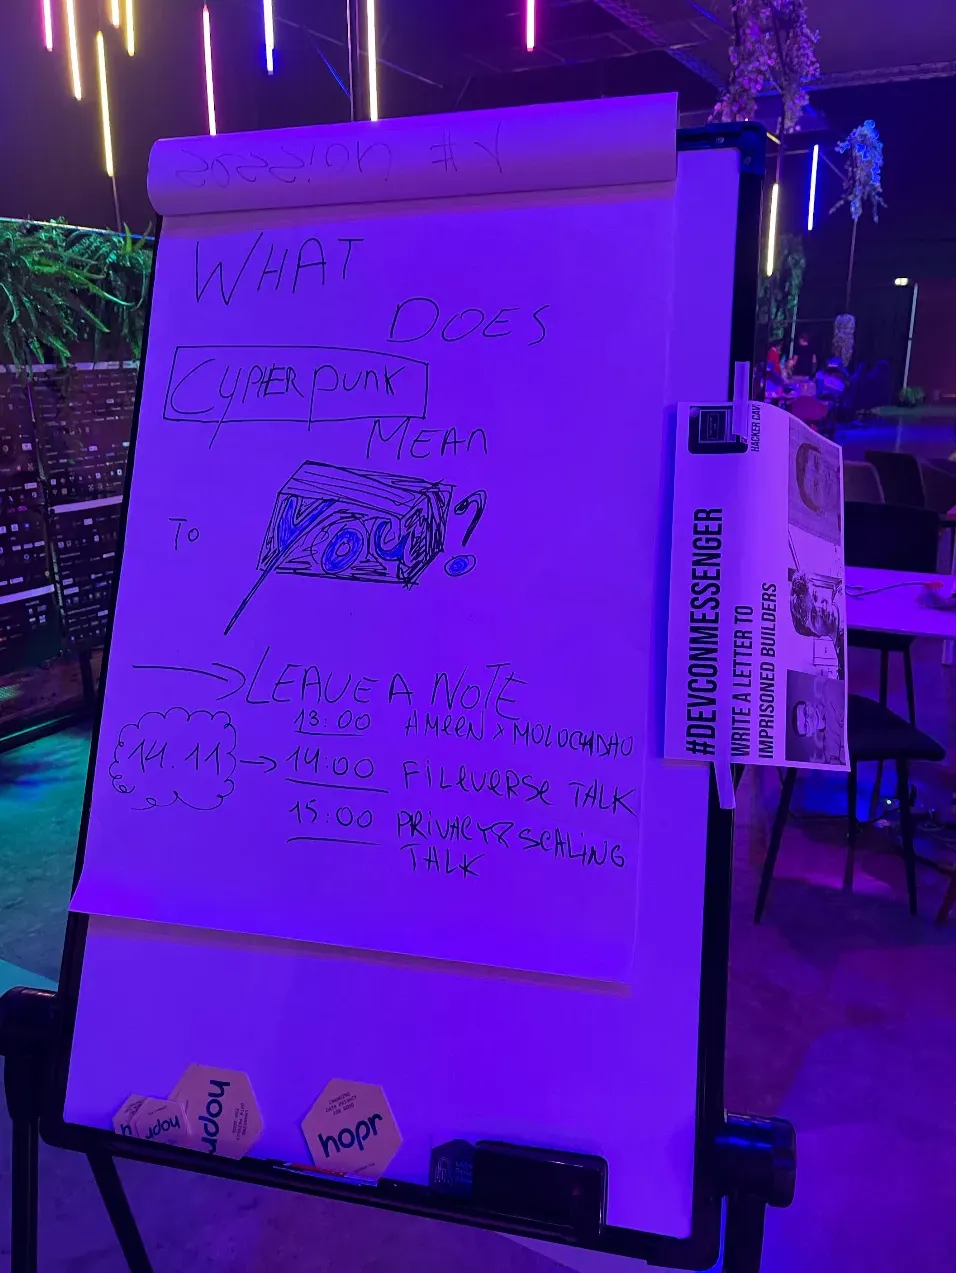 session #1
WHAT
DOES
CYPHERPUNK
MEAN
TO
YOU?
LEAVE A NOTE
14.11
13:00 AMEEN X MOLOCHDAO
14:00 FILEVERSE TALK
15:00 PRIVACY & SCALING
TALK
#DEVCONMESSENGER
WRITE A LETTER TO
IMPRISONED BUILDERS
hopr
hopr
CHANGING
DATA PRIVACY
FOR GOOD
hopr